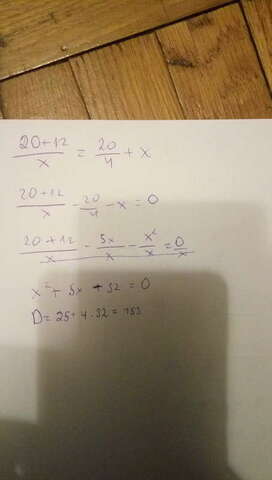 20+12/x = 20/4 + x
20+12/x - 20/4 - x = 0
20+12/x - 5x/x - x²/x = 0/x
x² + 5x + 32 = 0
D = 25 + 4·32 = 153